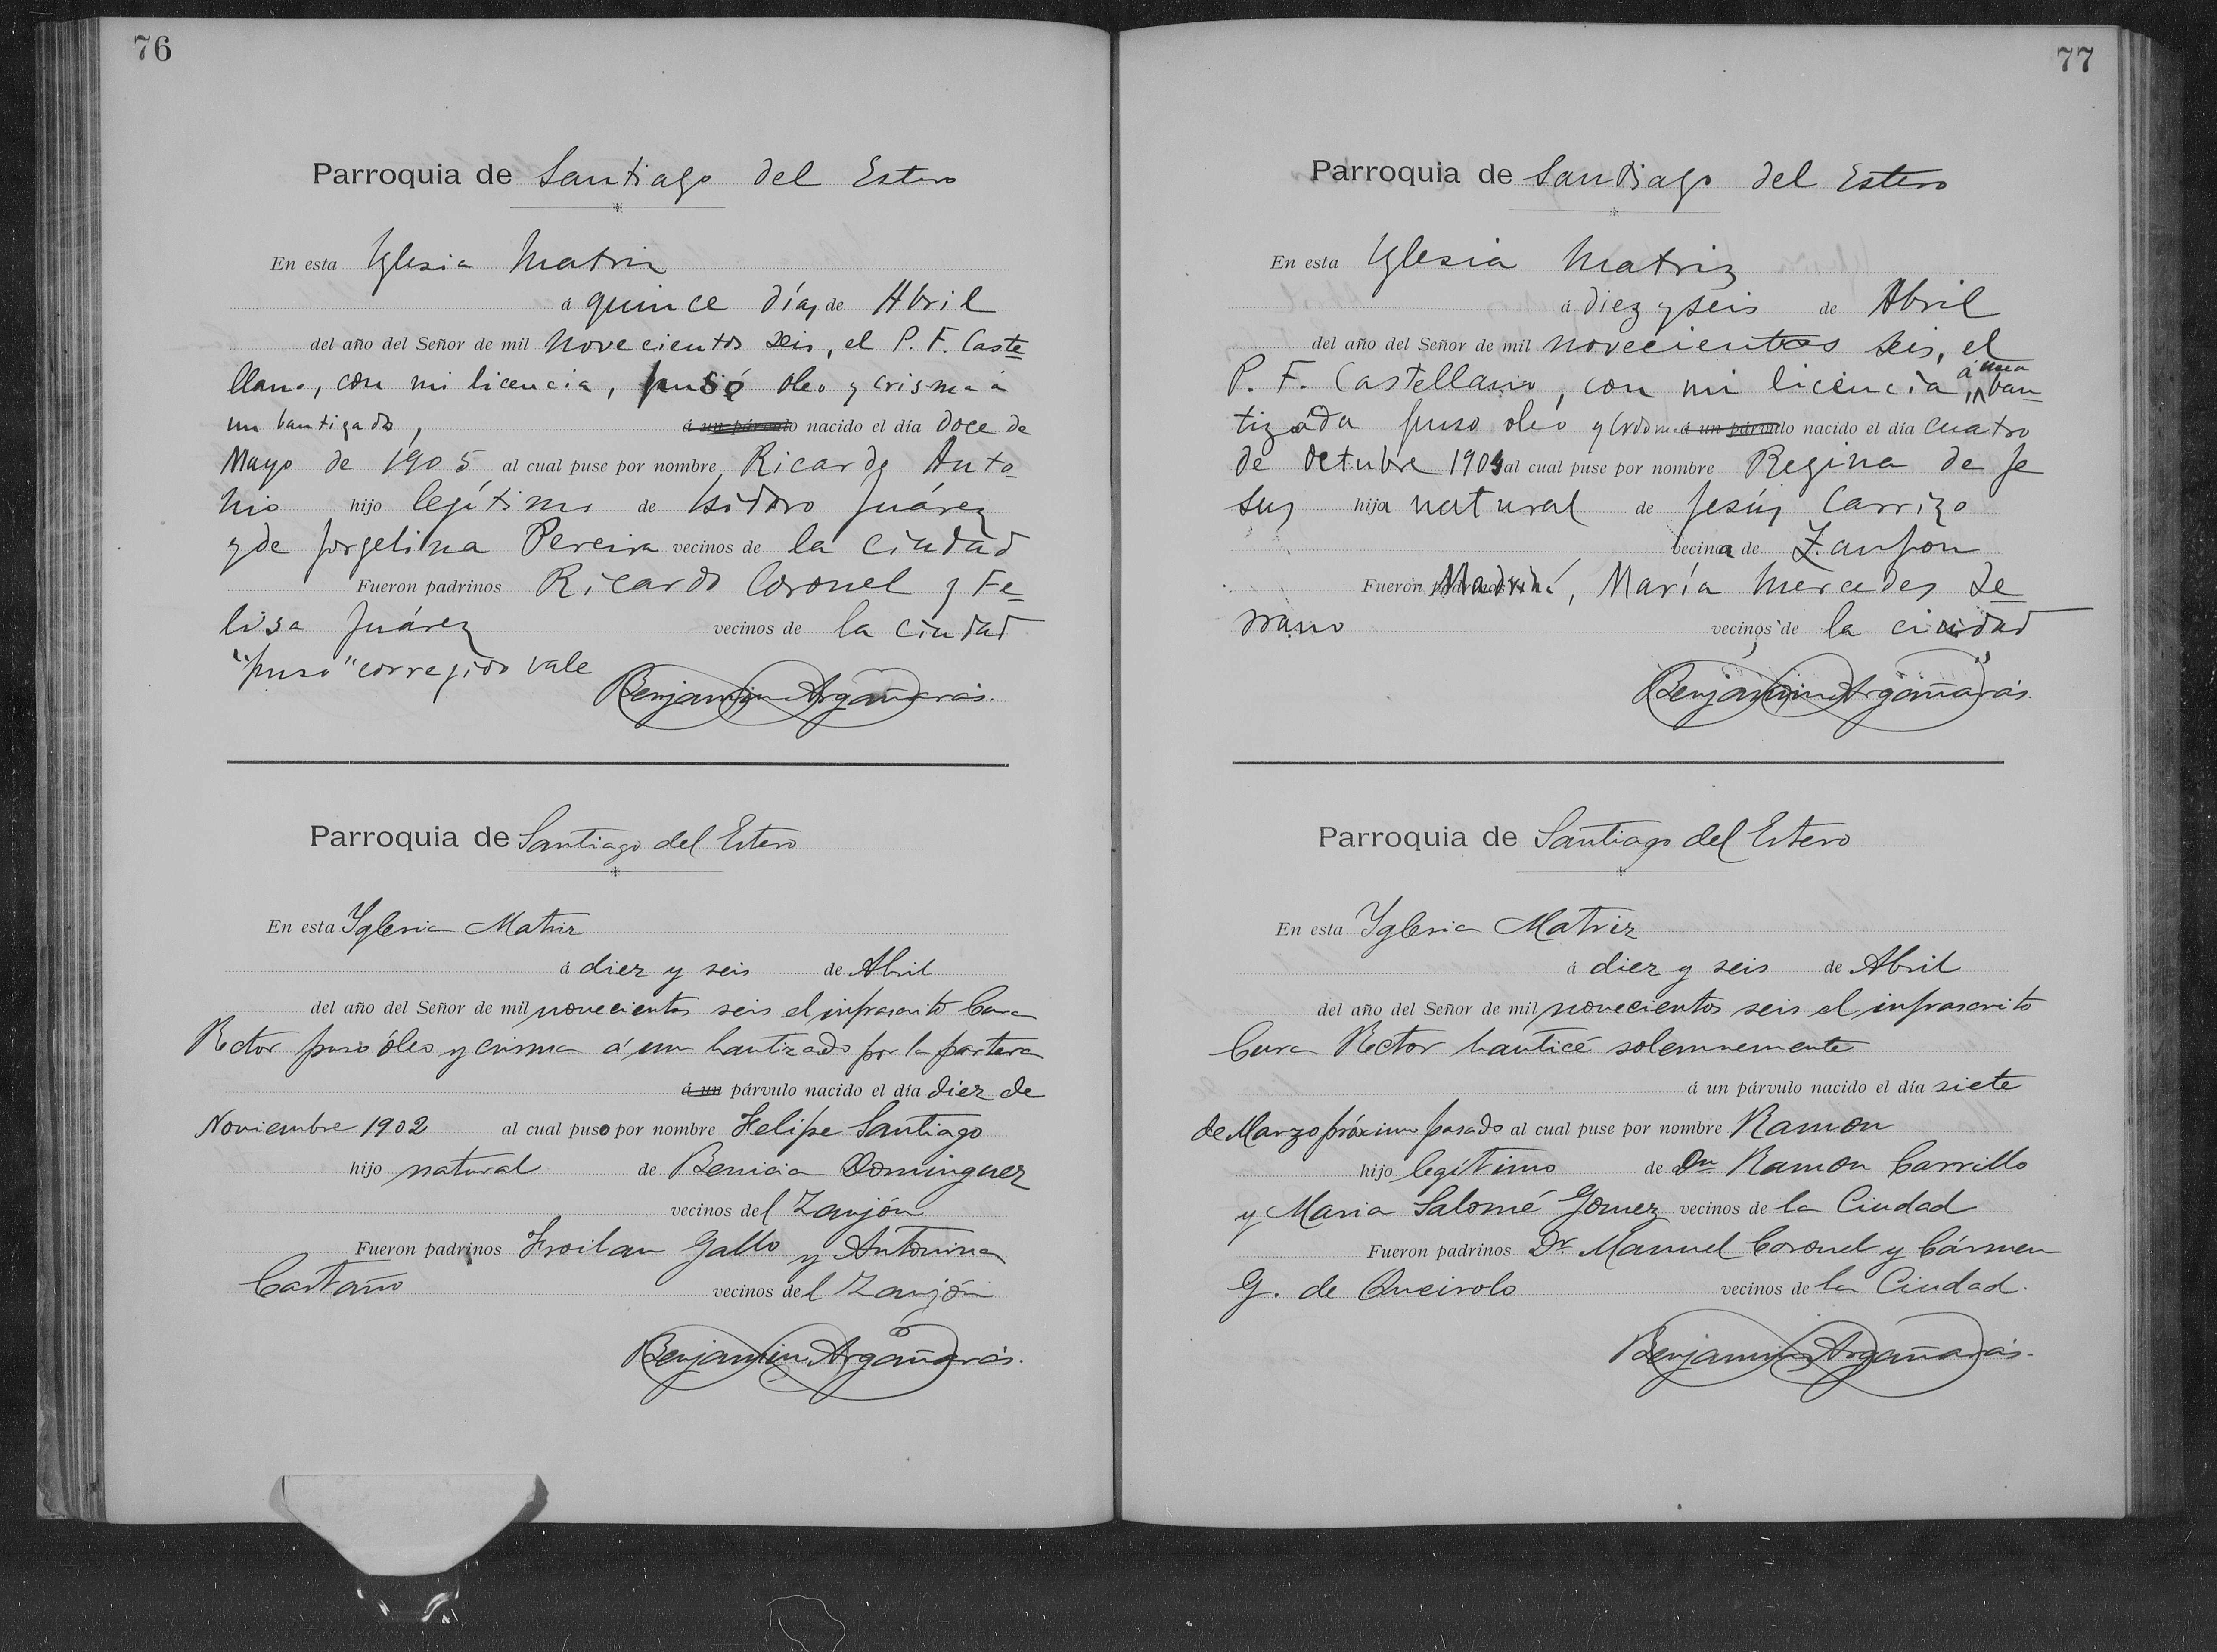 76
Parroquia de Santiago del Estero
En esta Yglesia Matriz
á quince días de Abril
del año del Señor de mil novecientos seis, el P. F. Caste
llano, con mi licencia, puso oleo y crisma á
un bautizado, á un párvulo nacido el día doce de
Mayo de 1905 al cual puse por nombre Ricardo Anto
nio hijo legítimo de Isidoro Juárez
y de Jorgelina Pereira vecinos de la ciudad
Fueron padrinos Ricardo Coronel y Fe
lisa Juárez vecinos de la ciudad
"puso" corregido vale
Benjamin Argañarás.
Parroquia de Santiago del Estero
En esta Yglesia Matriz
á diez y seis de Abril
del año del Señor de mil novecientos seis el infrascrito Cura
Rector puso óleo y crisma á un bautizado por la partera
á un párvulo nacido el día diez de
Noviembre 1902 al cual puso por nombre Felipe Santiago
hijo natural de Benicia Dominguez
vecinos del Zanjón
Fueron padrinos Froilan Gallo y Antonina
Castaño vecinos del Zanjón
Benjamin Argañarás.
77
Parroquia de Santiago del Estero
En esta Yglesia Matriz
á diez y seis de Abril
del año del Señor de mil novecientos seis, el
P. F. Castellano, con mi licencia, á una bau
tizada puso oleo y á un párvulo nacido el día cuatro
de Octubre al cual puse por nombre Regina de Je
sus hija natural de Jesús Carrizo
vecina de Zanjon
Fueron Madrina, María Mercedes Se
rrano vecinos de la ciudad
Benjamin Argañarás.
Parroquia de Santiago del Estero
En esta Yglesia Matriz
á diez y seis de Abril
del año del Señor de mil novecientos seis el infrascrito
Cura Rector bauticé solemnemente
á un párvulo nacido el día siete
de Marzo próximo pasado al cual puse por nombre Ramon
hijo legítimo de Dn Ramon Carrillo
y Maria Salomé Gomez vecinos de la Ciudad
Fueron padrinos Dr Manuel Coronel y Cármen
G. de Queirolo vecinos de la Ciudad.
Benjamin Argañarás.